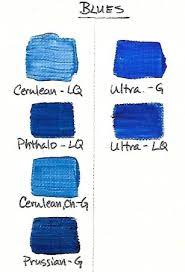 BLUES
Cerulean-LQ
Ultra.-G
Phthalo-LQ
Ultra-LQ
Cerulean,Ch-G
Prussian-G